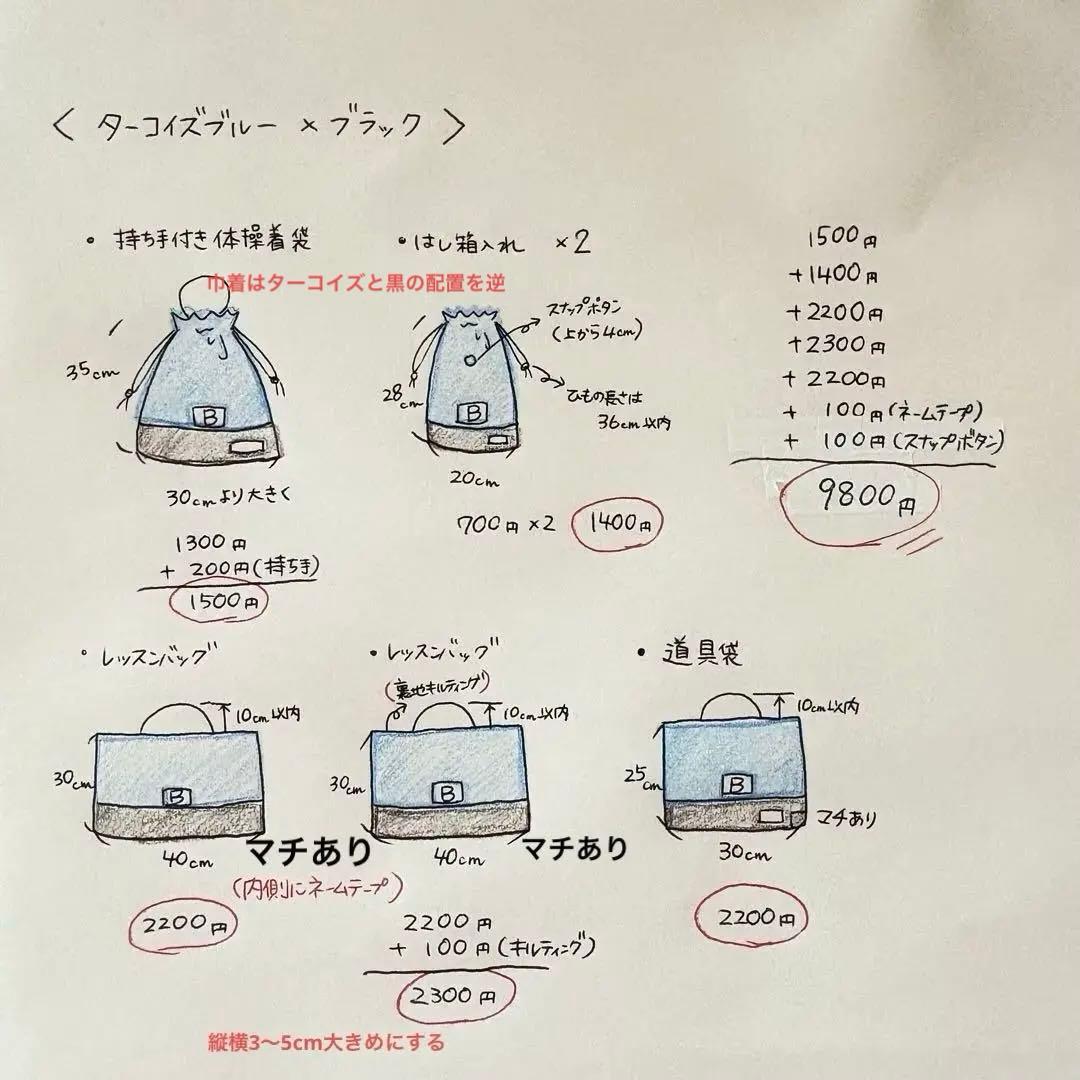 < ターコイズブルー × ブラック >
・ 持ち手付き体操着袋
巾着はターコイズと黒の配置を逆
35cm
B
30cmより大きく
1300円
+ 200円(持ち手)
1500円
・はし箱入れ ×2
スナップボタン
(上から4cm)
28cm
ひもの長さは
36cm以内
B
20cm
700円×2 1400円
1500円
+1400円
+2200円
+2300円
+2200円
+ 100円(ネームテープ)
+ 100円(スナップボタン)
9800円
・レッスンバッグ
10cm以内
30cm
B
40cm
マチあり
(内側にネームテープ)
2200円
・レッスンバッグ
(裏地キルティング)
10cm以内
30cm
B
40cm
マチあり
2200円
+ 100円(キルティング)
2300円
・道具袋
10cm以内
25cm
B
マチあり
30cm
2200円
縦横3〜5cm大きめにする